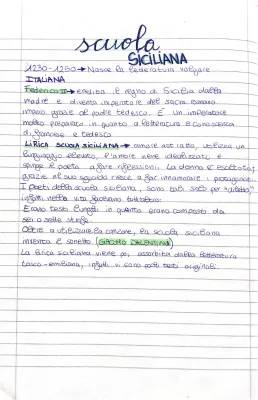 scuola
SICILIANA
1230-1250 → Nasce la letteratura volgare
ITALIANA
Federico II → eredita il regno di Sicilia dalla
madre e diventa imperatore del sacro romano
impero grazie al padre tedesco. È un imperatore
molto preparato in quanto a letteratura e conoscenza
di francese e tedesco
LIRICA SCUOLA SICILIANA → amore astratto, utilizza un
linguaggio elevato, l'amore viene idealizzato e
spinge il poeta a fare riflessioni. La donna è esaltata,
grazie al suo sguardo riesce a far innamorare i protagonisti.
I poeti della scuola siciliana, sono tali solo per "diletto"
infatti nella vita facevano tutt'altro.
Erano testi lunghi in quanto erano composti da
sei o sette strofe.
Oltre a utilizzare la canzone, la scuola siciliana
inventa il sonetto (GIACOMO DA LENTINI)
La lirica siciliana viene poi assorbita dalla letteratura
tosco-emiliana, infatti vi sono pochi testi originali.